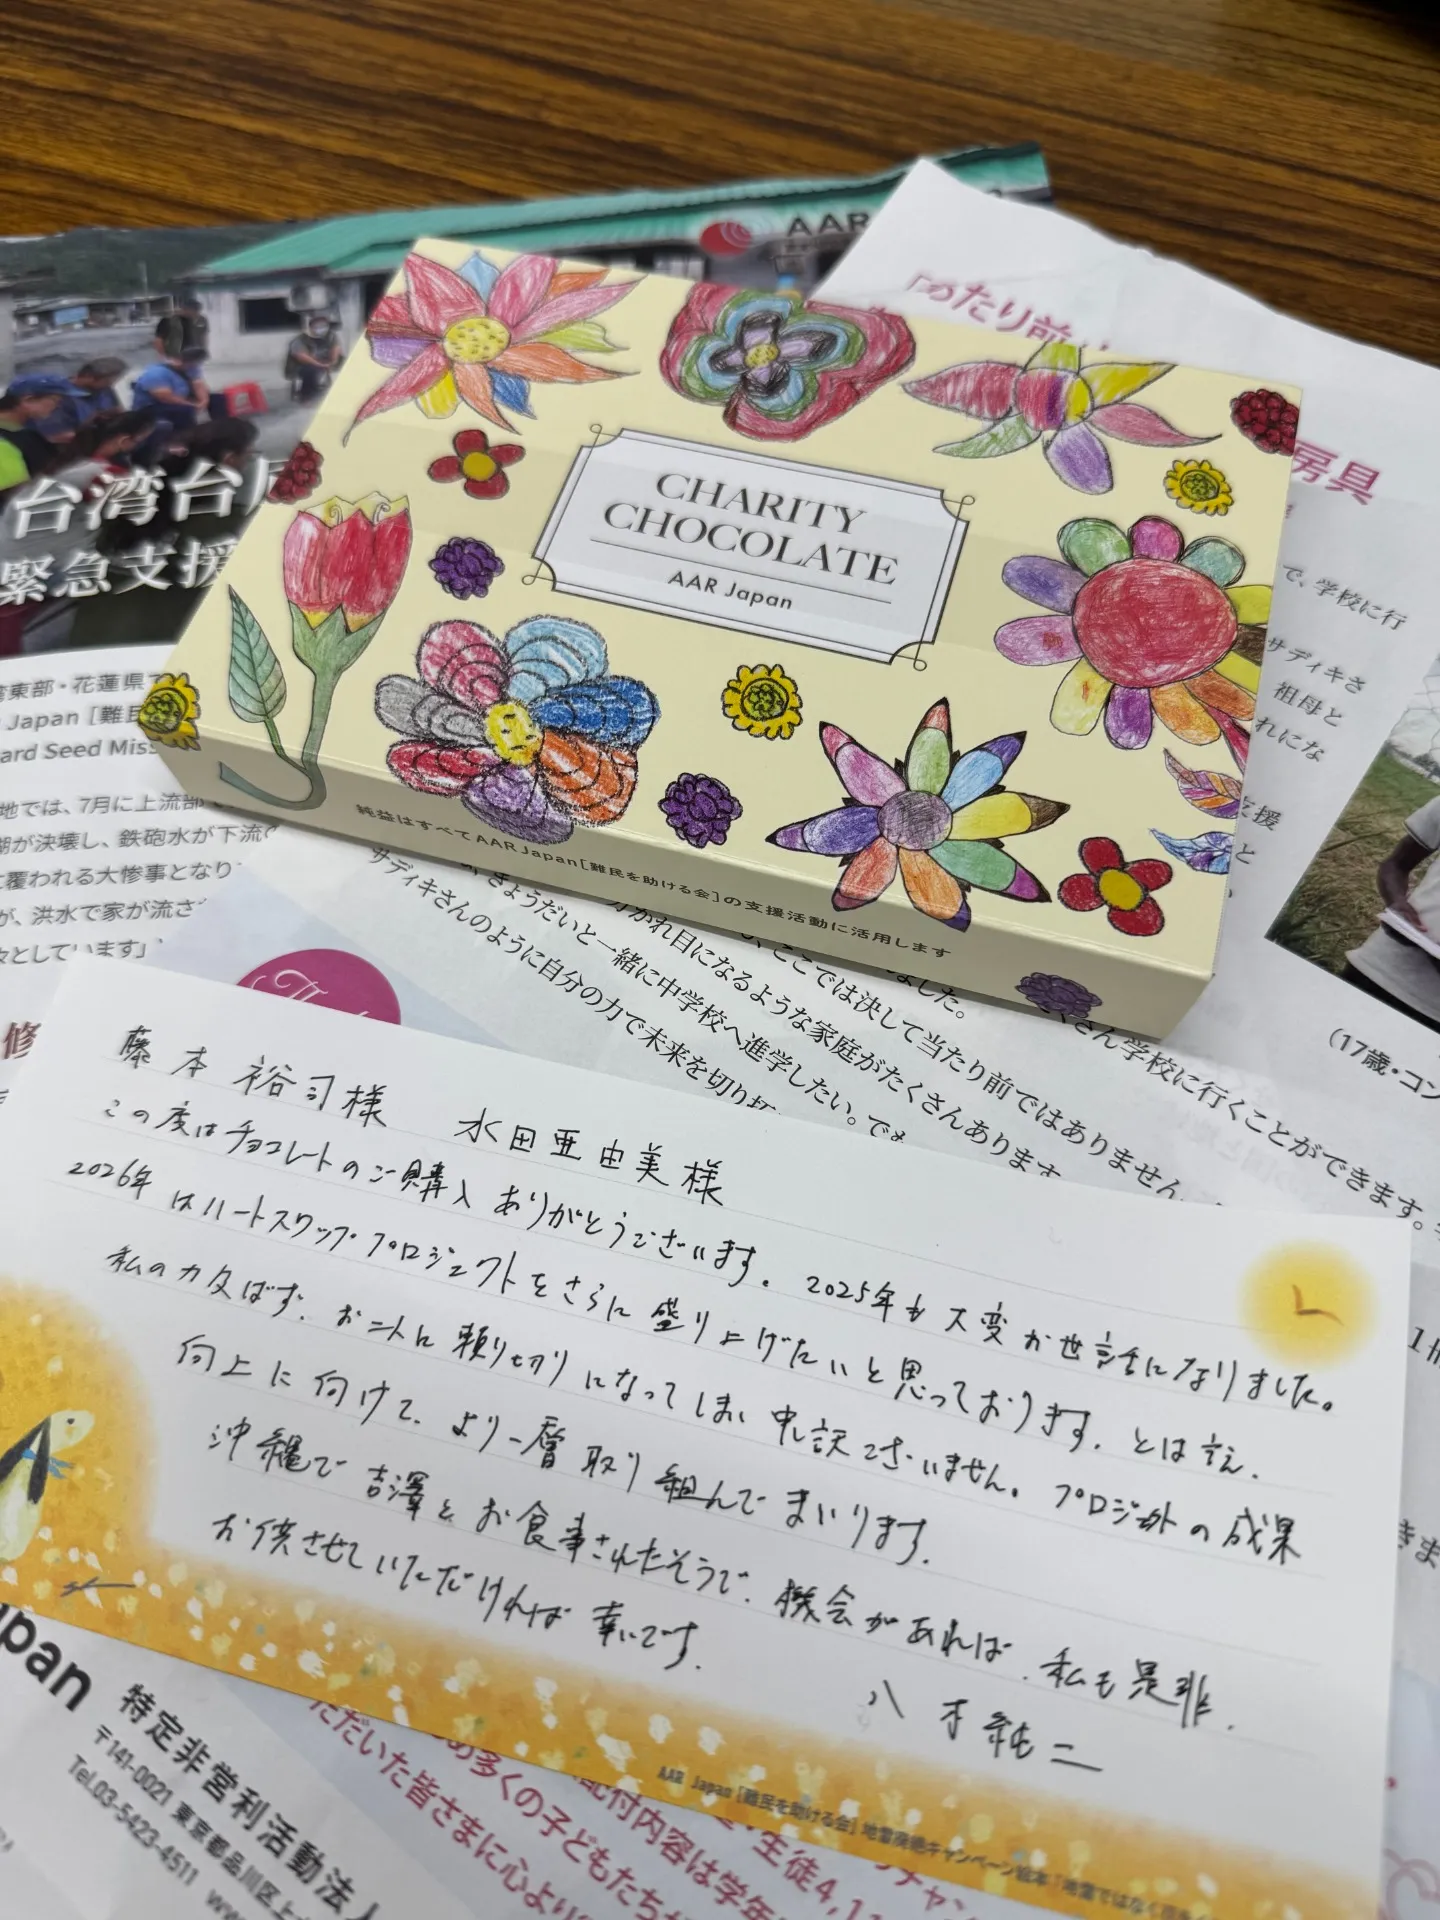 AAR
台湾台
緊急支援
「あたり前
房具
CHARITY
CHOCOLATE
AAR Japan
純益はすべてAAR Japan[難民を助ける会]の支援活動に活用します
湾東部・花蓮県
Japan[難民
ard Seed Miss
地では、7月に上流部
湖が決壊し、鉄砲水が下流
に覆われる大惨事となり
が、洪水で家が流さ
で、学校に行
サディキさ
祖母と
れにな
支援
と
たくさん学校に行くことができます。
ここでは決して当たり前ではありません
分かれ目になるような家庭がたくさんあります
きょうだいと一緒に中学校へ進学したい。
サディキさんのように自分の力で未来を切り拓
(17歳・コン
修
藤本裕司様 水田亜由美様
この度はチョコレートのご購入ありがとうございます。2025年も大変お世話になりました。
2026年はハートスワップ・プロジェクトをさらに盛り上げたいと思っております。とは言え、
私の力及ばず、お二人に頼り切りになってしまい申し訳ございません。プロジェクトの成果
向上に向けて、より一層取り組んでまいります。
沖縄で吉澤とお食事されたそうで、機会があれば、私も是非、
お供させていただければ幸いです。
八木純二
AAR Japan[難民を助ける会]地雷廃絶キャンペーン絵本『地雷ではなく花を
pan
特定非営利活動法人
〒141-0021 東京都品川区上
Tel.03-5423-4511
め多くの子どもたち
配付内容は学年
生徒4,1
ただいた皆さまに心より
チャン